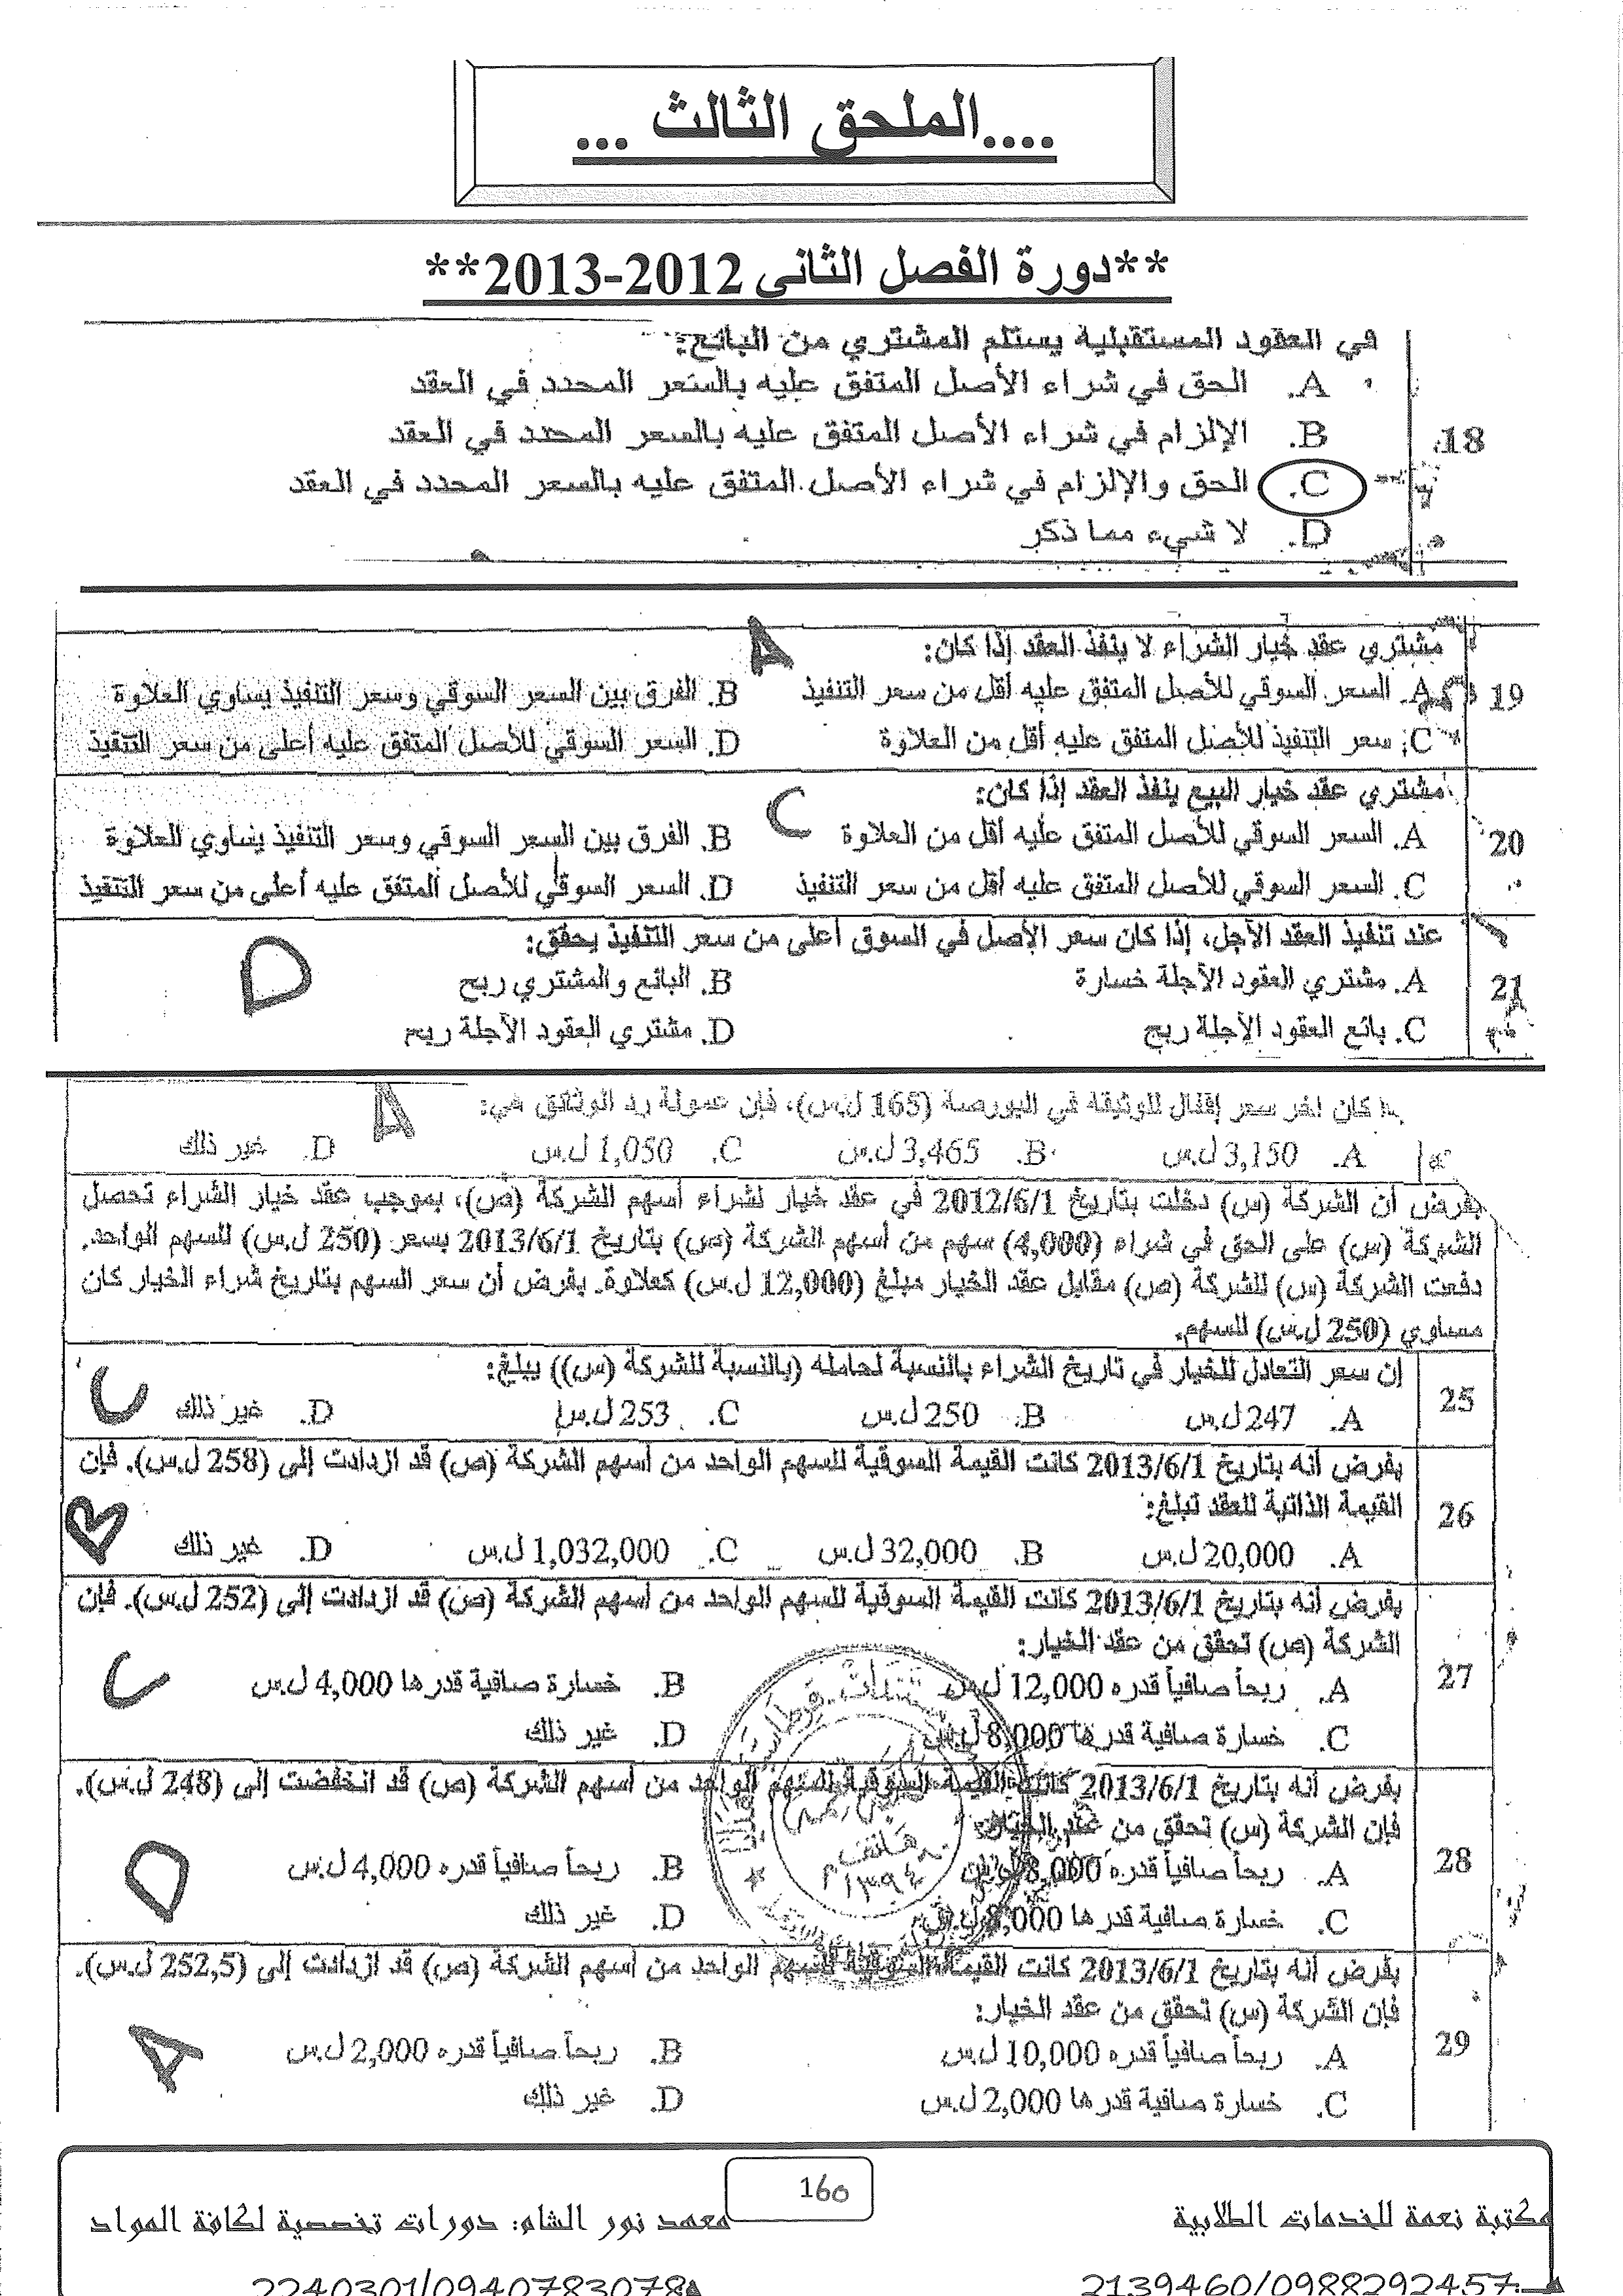 ....الملحق الثالث ...
**دورة الفصل الثاني 2012-2013**
18. في العقود المستقبلية يستلم المشتري من البائع:
A. الحق في شراء الأصل المتفق عليه بالسعر المحدد في العقد
B. الإلزام في شراء الأصل المتفق عليه بالسعر المحدد في العقد
C. الحق والإلزام في شراء الأصل المتفق عليه بالسعر المحدد في العقد
D. لا شيء مما ذكر
19 مشتري عقد خيار الشراء لا ينفذ العقد إذا كان: A
A. السعر السوقي للأصل المتفق عليه أقل من سعر التنفيذ B. الفرق بين السعر السوقي وسعر التنفيذ يساوي العلاوة
C. سعر التنفيذ للأصل المتفق عليه أقل من العلاوة D. السعر السوقي للأصل المتفق عليه أعلى من سعر التنفيذ
20 مشتري عقد خيار البيع ينفذ العقد إذا كان: C
A. السعر السوقي للأصل المتفق عليه أقل من العلاوة B. الفرق بين السعر السوقي وسعر التنفيذ يساوي العلاوة
C. السعر السوقي للأصل المتفق عليه أقل من سعر التنفيذ D. السعر السوقي للأصل المتفق عليه أعلى من سعر التنفيذ
21 عند تنفيذ العقد الآجل، إذا كان سعر الأصل في السوق أعلى من سعر التنفيذ يحقق: D
A. مشتري العقود الآجلة خسارة B. البائع والمشتري ربح
C. بائع العقود الآجلة ربح D. مشتري العقود الآجلة ربح
كان اخر سعر إقفال للوثيقة في البورصة (165 ل.س)، فإن عمولة رد الوثائق هي: A
A. 3,150 ل.س B. 3,465 ل.س C. 1,050 ل.س D. غير ذلك
بفرض أن الشركة (س) دخلت بتاريخ 2012/6/1 في عقد خيار لشراء أسهم الشركة (ص)، بموجب عقد خيار الشراء تحصل
الشركة (س) على الحق في شراء (4,000) سهم من أسهم الشركة (ص) بتاريخ 2013/6/1 بسعر (250 ل.س) للسهم الواحد.
دفعت الشركة (س) للشركة (ص) مقابل عقد الخيار مبلغ (12,000 ل.س) كعلاوة. بفرض أن سعر السهم بتاريخ شراء الخيار كان
مساوي (250 ل.س) للسهم.
25 إن سعر التعادل للخيار في تاريخ الشراء بالنسبة لحامله (بالنسبة للشركة (س)) يبلغ: C
A. 247 ل.س B. 250 ل.س C. 253 ل.س D. غير ذلك
26 بفرض أنه بتاريخ 2013/6/1 كانت القيمة السوقية للسهم الواحد من أسهم الشركة (ص) قد ازدادت إلى (258 ل.س). فإن
القيمة الذاتية للعقد تبلغ: B
A. 20,000 ل.س B. 32,000 ل.س C. 1,032,000 ل.س D. غير ذلك
27 بفرض أنه بتاريخ 2013/6/1 كانت القيمة السوقية للسهم الواحد من أسهم الشركة (ص) قد ازدادت إلى (252 ل.س). فإن
الشركة (ص) تحقق من عقد الخيار: C
A. ربحاً صافياً قدره 12,000 ل.س B. خسارة صافية قدرها 4,000 ل.س
C. خسارة صافية قدرها 8,000 ل.س D. غير ذلك
28 بفرض أنه بتاريخ 2013/6/1 كانت القيمة السوقية للسهم الواحد من أسهم الشركة (ص) قد انخفضت إلى (248 ل.س).
فإن الشركة (س) تحقق من عقد الخيار: D
A. ربحاً صافياً قدره 8,000 ل.س B. ربحاً صافياً قدره 4,000 ل.س
C. خسارة صافية قدرها 8,000 ل.س D. غير ذلك
29 بفرض أنه بتاريخ 2013/6/1 كانت القيمة السوقية للسهم الواحد من أسهم الشركة (ص) قد ازدادت إلى (252,5 ل.س).
فإن الشركة (س) تحقق من عقد الخيار: A
A. ربحاً صافياً قدره 10,000 ل.س B. ربحاً صافياً قدره 2,000 ل.س
C. خسارة صافية قدرها 2,000 ل.س D. غير ذلك
160
مكتبة نعمة للخدمات الطلابية معهد نور الشام: دورات تخصصية لكافة المواد
2139460/0988292457 2240301/0940783078